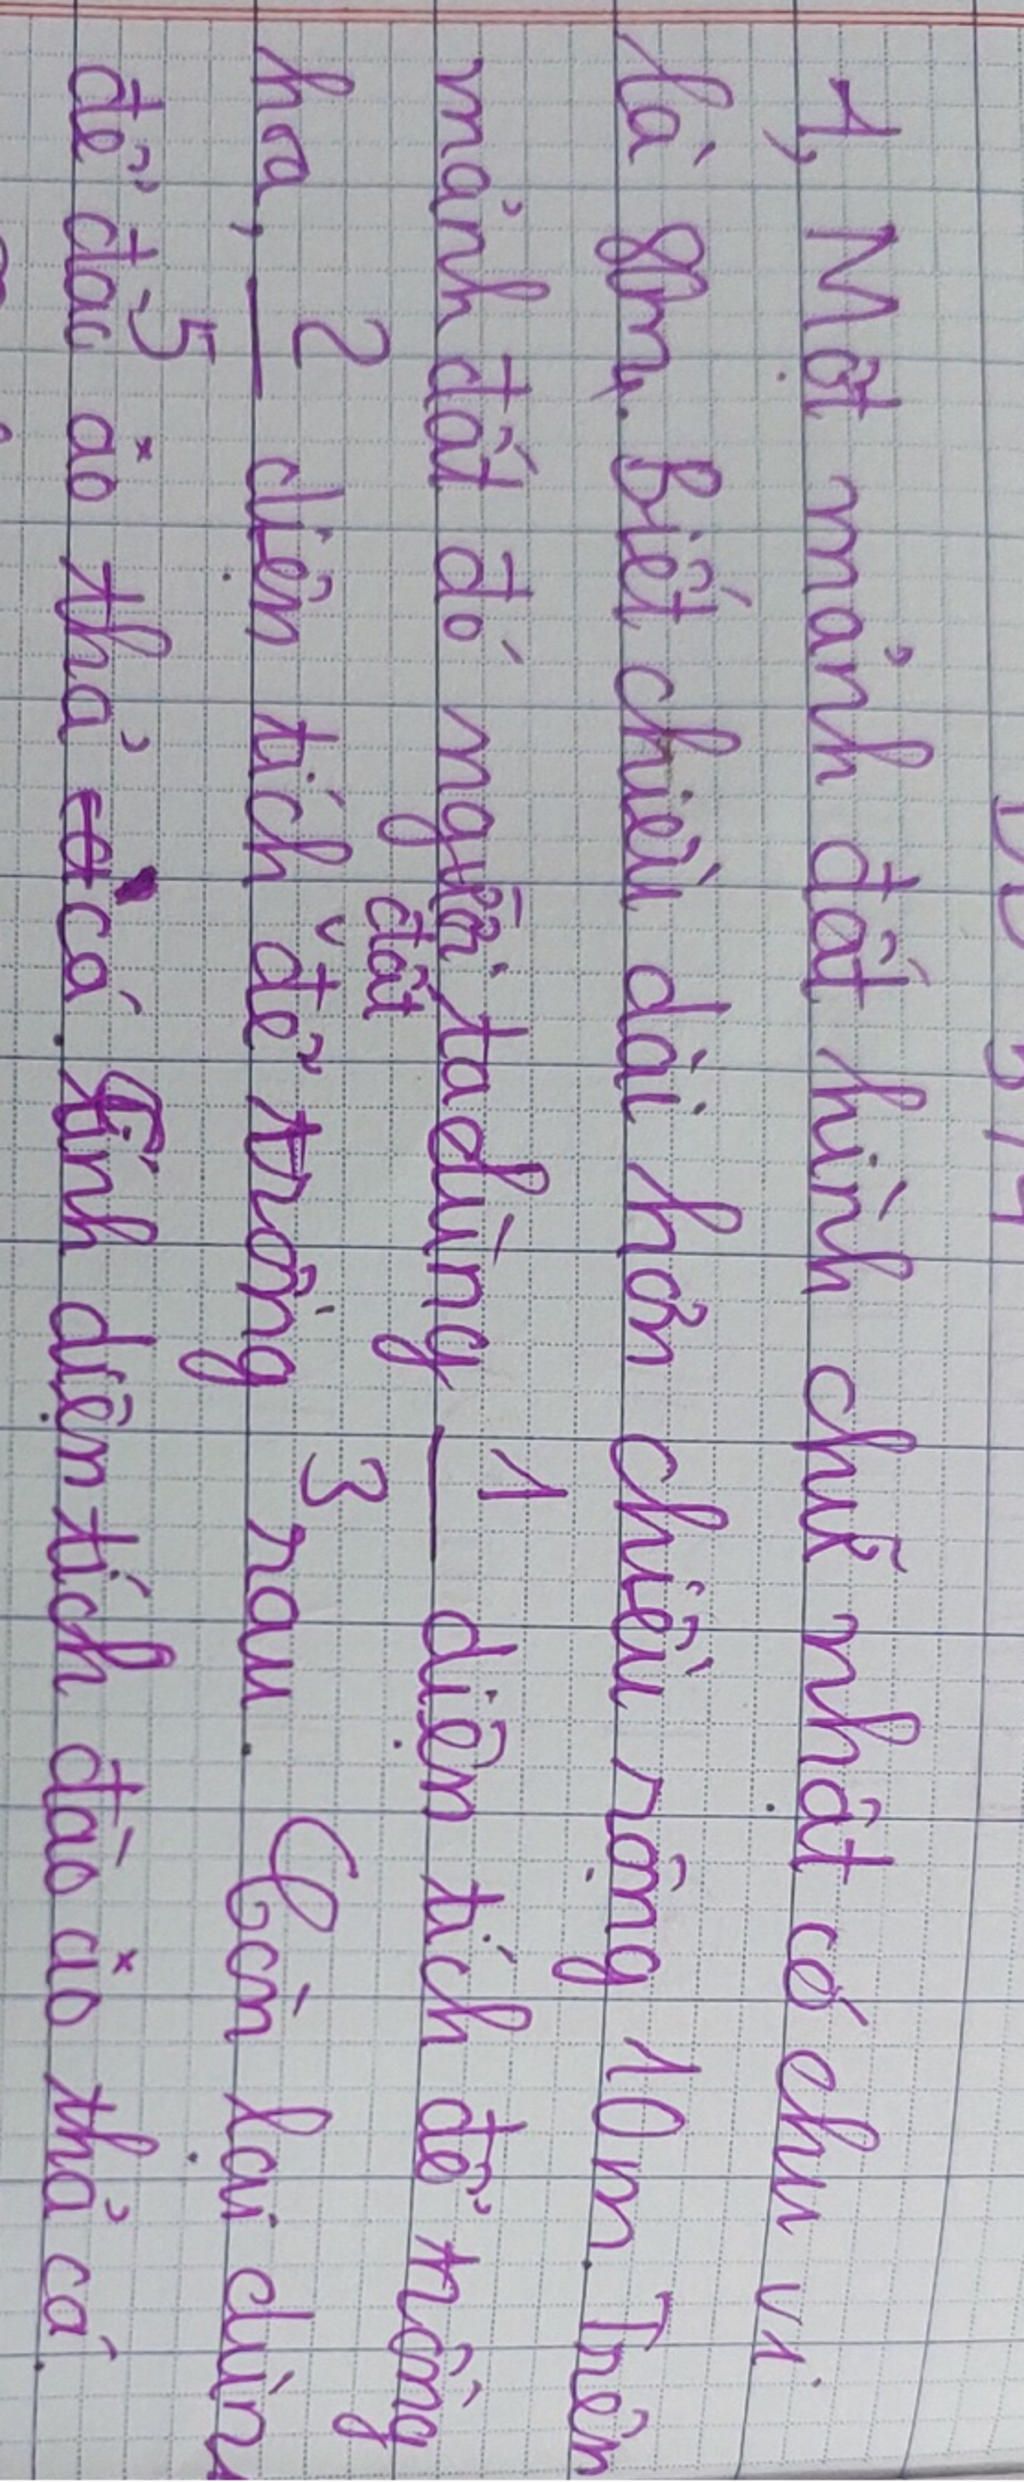 1, Một mảnh đất hình chữ nhật có chu vi
là 8m. Biết chiều dài hơn chiều rộng 10m. Trên
mảnh đất đó người ta dùng 1/3 diện tích để trồng
hoa, 2/5 diện tích đất để trồng rau. Còn lại dùng
để đắc ảo thả cá. Tính diện tích đào ảo thả cá.